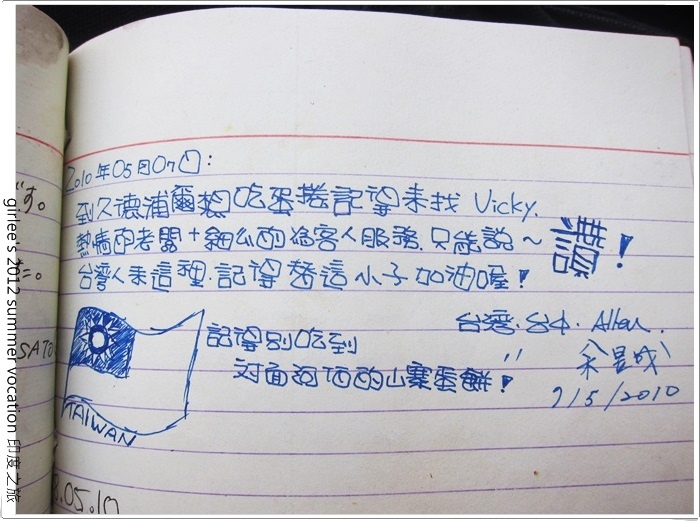 2010年05月07日:
到久德浦爾想吃蛋捲記得來找 Vicky.
熱情的老闆+細心的為客人服務.只能說~
讚!
台灣人來這裡.記得替這小子加油喔!
台灣.台中. Allen.
7/5/2010
記得別吃到
對面河西的山寨蛋餅!
TAIWAN
.05.10
す。
SATO
girlee's 2012 summer vocation 印度之旅